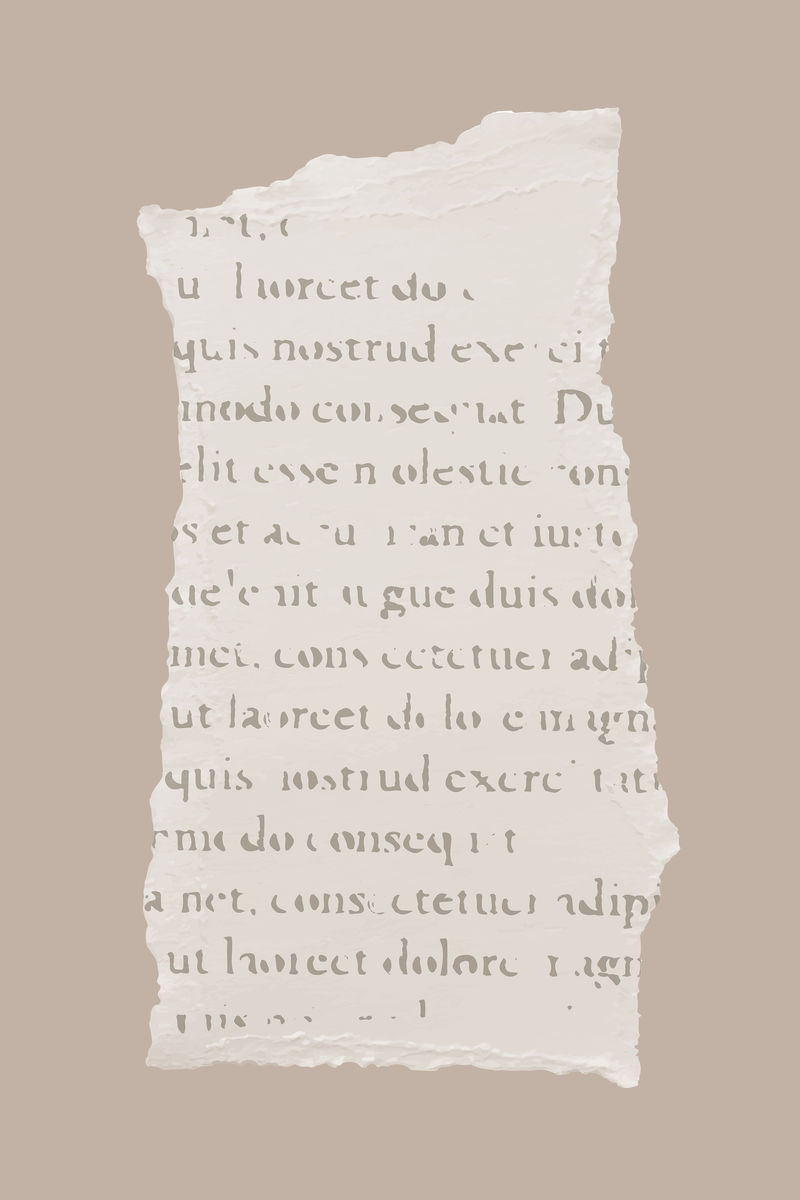 ut laoreet do
quis nostrud exerci t
modo consequat Du
elit esse molestie cons
os et accumsan et iusto
que'e ut ugue duis dol
met, consectetuer adip
ut laoreet dolore magn
quis nostrud exerci tati
mmodo consequat
a net, consectetuer adipi
ut laoreet dolore magn